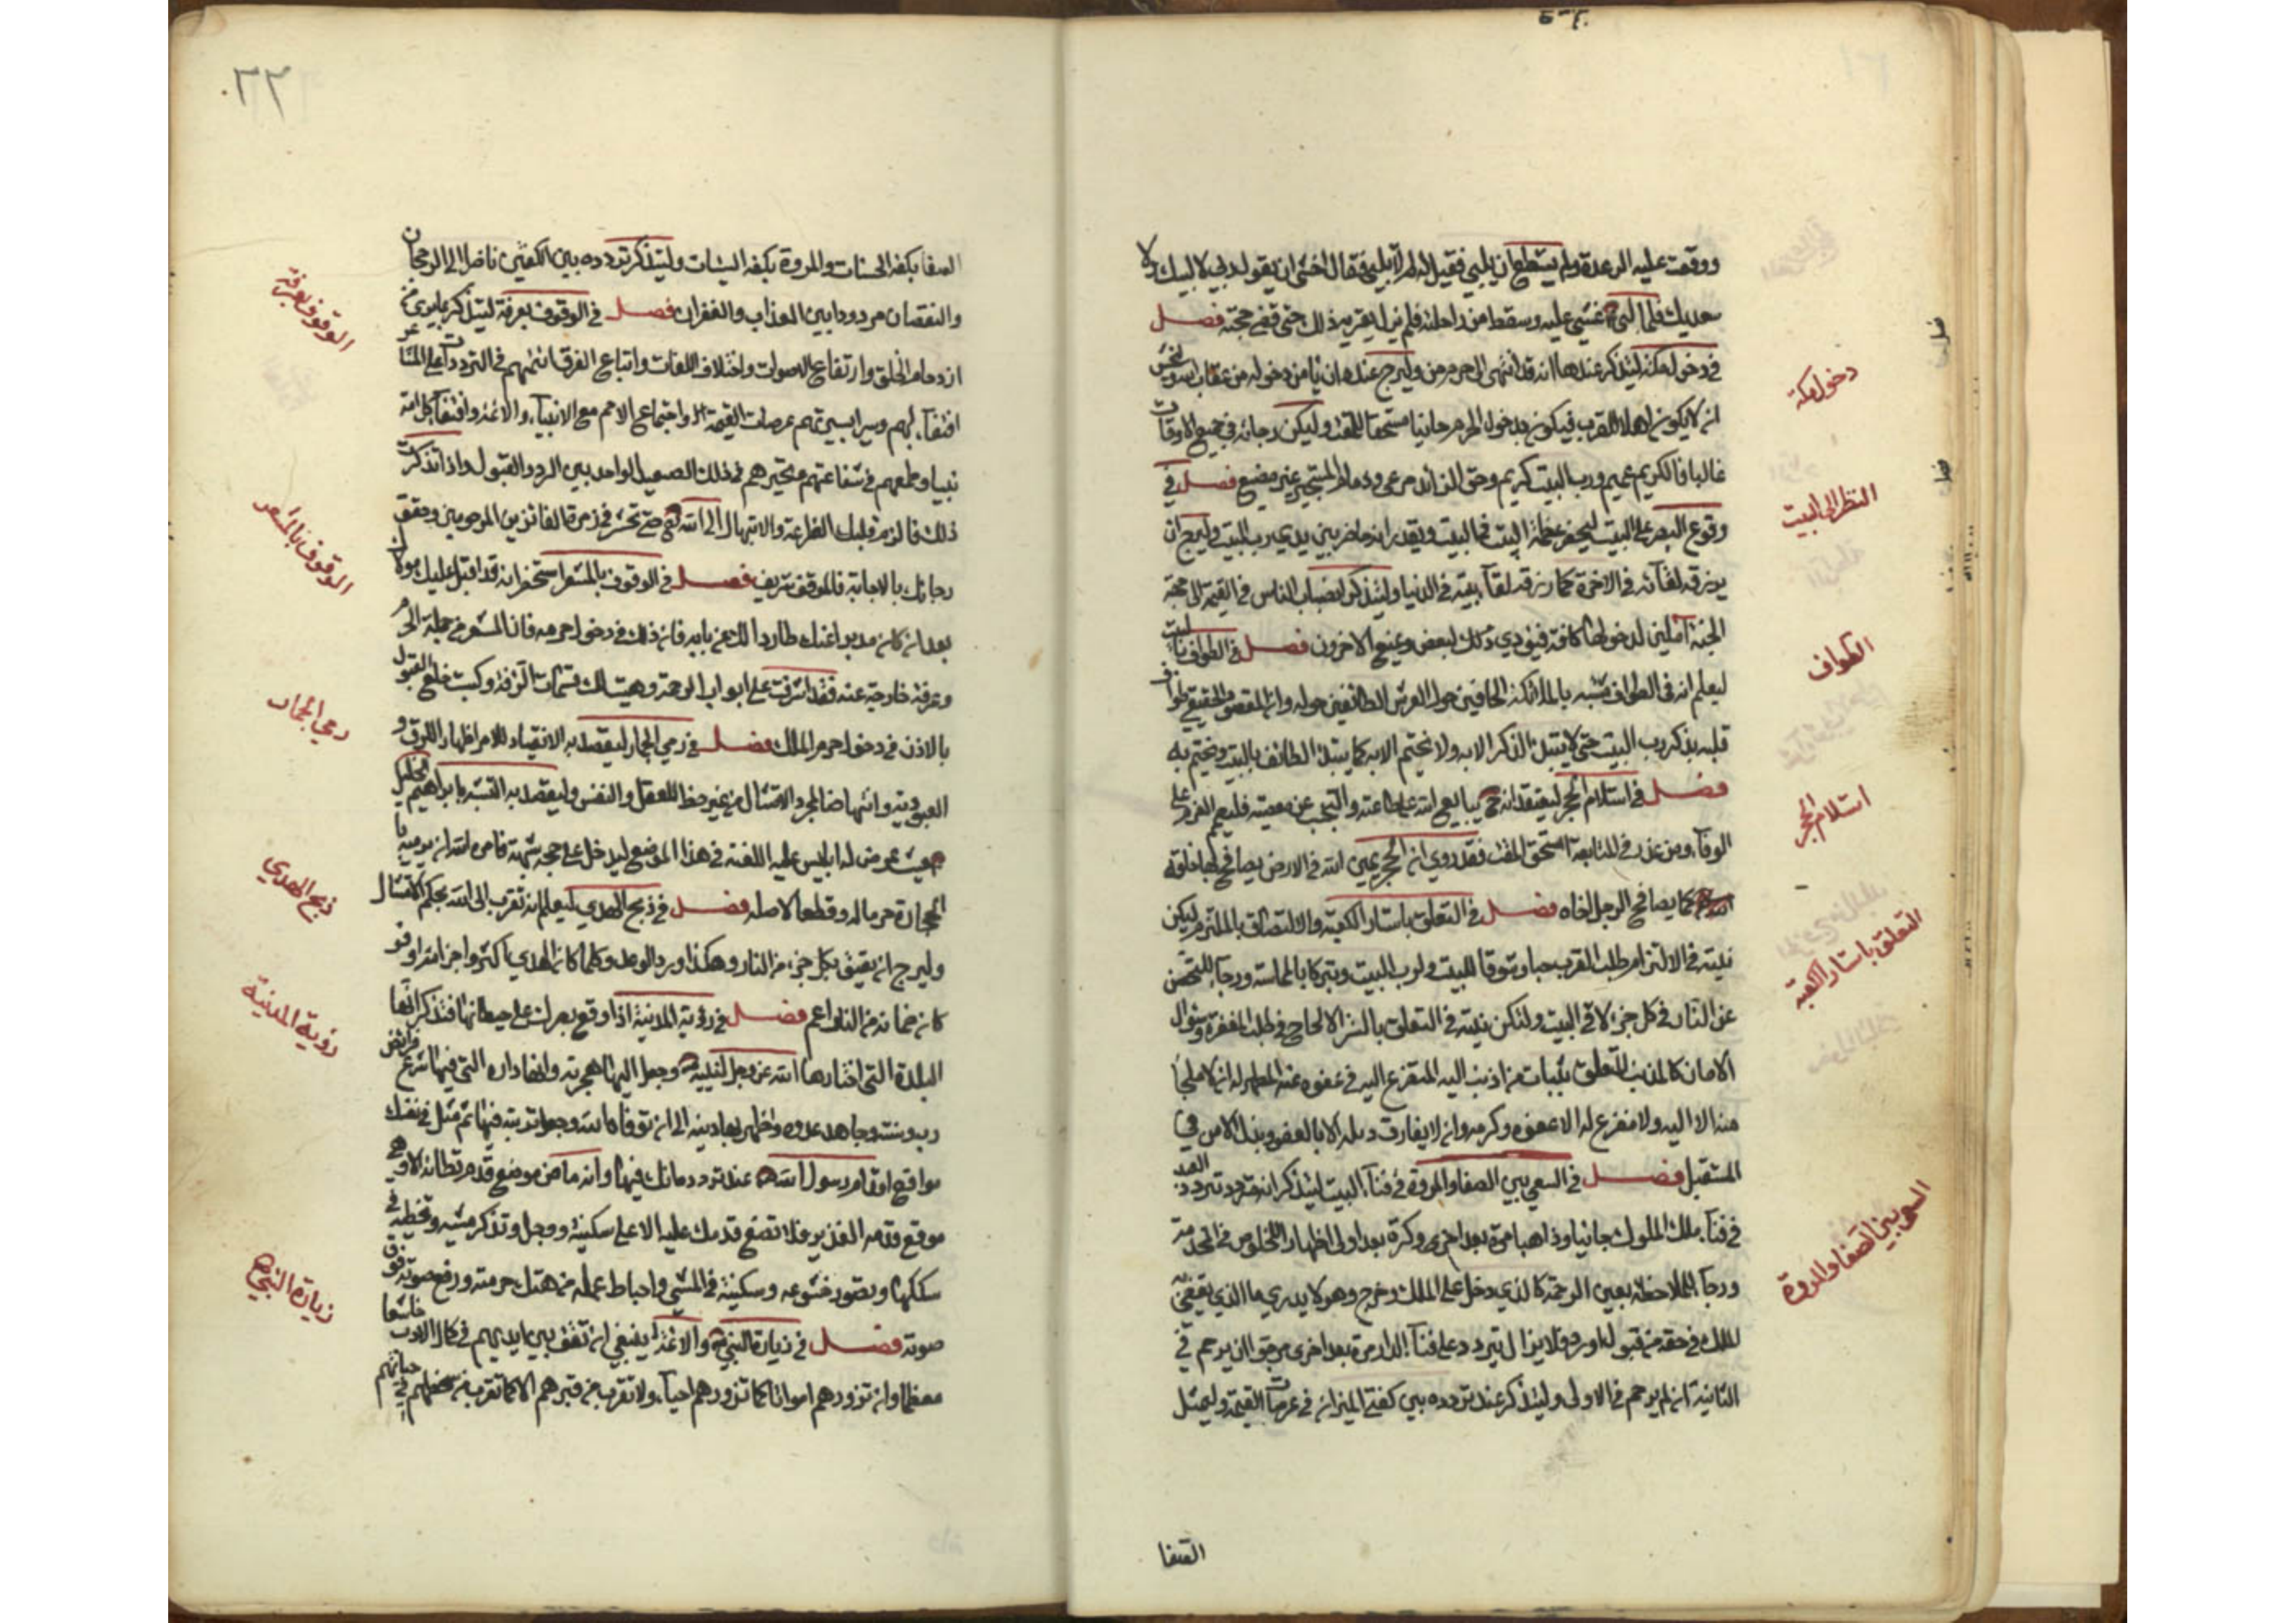 ووقعت عليه الرعدة ولم يستطع ان يلبي فقيل له لم لا تلبي فقال اخشى ان يقول ربي لا لبيك ولا
سعديك فلما لبى غشي عليه وسقط من راحلته فلم يزل يعتريه ذلك حتى قضى حجته فصل
في دخول مكة ليتذكر عندها انه قد انتهى الى حرم من وليرج عنده ان يأمن دخوله من عقاب الله وليخش
ان لا يكون اهلا للقرب فيكون بدخول الحرم خائبا مستحقا للمقت وليكن رجائه في جميع الاوقات
غالبا فالكريم عميم ورب البيت كريم وحق الزائر مرعي وذمام المستجير غير مضيع فصل في
وقوع البصر على البيت ليحضر عظمة البيت في البيت ويقدر انه حاضر بين يدي رب البيت وليرج ان
يرزقه لقائه في الاخرة كما رزقه لقاء بيته في الدنيا وليتذكر انصباب الناس في القيمة الى جهة
الجنة آملين لدخولها كافة فيؤذن لبعض ويمنع الاخرون فصل في الطواف
ليعلم انه في الطواف متشبه بالملائكة الحافين حول العرش الطائفين حوله وان المقصود الحقيقي طواف
قلبه بذكر رب البيت حتى لا يبتدئ الذكر الا به ولا يختم الا به كما يبتدئ الطائف بالبيت ويختم به
فصل في استلام الحجر ليعتقد انه يبايع الله على طاعته والتجنب عن معصيته فليصمم العزم على
الوفاء ومن غدر في المبايعة استحق المقت فقد روي ان الحجر يمين الله في الارض يصافح بها خلقه
كما يصافح الرجل اخاه فصل في التعلق باستار الكعبة والالتصاق بالملتزم ليكن
نيته في الالتزام طلب القرب حبا وشوقا للبيت ولرب البيت وتبركا بالمماسة ورجاء للتحصن
عن النار في كل جزء لاقى البيت ولتكن نيته في التعلق بالستر الالحاح في طلب المغفرة وسؤال
الامان كالمذنب المتعلق بثياب من اذنب اليه المتضرع اليه في عفوه عنه المظهر له ان لا ملجأ
منه الا اليه ولا مفزع له الا عفوه وكرمه وانه لا يفارق ذيله الا بالعفو وبذل الامن في
المستقبل فصل في السعي بين الصفا والمروة في فناء البيت ليتذكر انه متردد تردد العبد
في فناء ملك الملوك جائيا وذاهبا مرة بعد اخرى وكرة بعد اولى اظهارا للخلوص في الخدمة
ورجاء للملاحظة بعين الرحمة كالذي دخل على الملك وخرج وهو لا يدري ما الذي يقضي به
الملك في حقه من قبول او رد فلا يزال يتردد على فناء الدار مرة بعد اخرى يرجو ان يرحم في
الثانية ان لم يرحم في الاولى وليتذكر عند تردده بين كفتي الميزان في عرصات القيمة وليمثل
الصفا
دخول مكة
النظر الى البيت
الطواف
استلام الحجر
التعلق باستار الكعبة
السعي بين الصفا والمروة
٢٢٠
الصفا بكفة الحسنات والمروة بكفة السيئات وليتذكر تردده بين الكفتين ناظرا الى الرجحان
والنقصان مرددا بين العذاب والغفران فصل في الوقوف بعرفة ليتذكر بما يرى من
ازدحام الخلق وارتفاع الاصوات واختلاف اللغات واتباع الفرق ائمتهم في الترددات على المشاعر
اقتفاء لهم وسيرا بسيرتهم عرصات القيمة واجتماع الامم مع الانبياء والائمة واقتفاء كل امة
نبيها وطمعهم في شفاعتهم وتحيرهم في ذلك الصعيد الواحد بين الرد والقبول واذا تذكرت
ذلك فالزم قلبك الضراعة والابتهال الى الله حتى تحشر في زمرة الفائزين المرحومين وحقق
رجائك بالاجابة فالموقف شريف فصل في الوقوف بالمشعر استحضر انه قد اقبل عليك مولاك
بعد ان كان مدبرا عنك طاردا لك عن بابه فاذن لك في دخول حرمه فان المشعر من جملة الحرم
وعرفة خارجة عنه فقد اشرفت على ابواب الرحمة وهبت لك نسمات الرأفة وكسيت خلع القبول
بالاذن في دخول حرم الملك فصل في رمي الجمار ليقصد به الانقياد للامر اظهارا للرق و
العبودية وانتهاضا لمجرد الامتثال من غير حظ للعقل والنفس وليقصد به التشبه بابراهيم الخليل
حيث عرض له ابليس عليه اللعنة في هذا الموضع ليدخل على حجه شبهة فامره الله ان يرميه با
لحجارة طردا له وقطعا لامله فصل في ذبح الهدي ليعلم انه تقرب الى الله بحكم الامتثال
وليرج ان يعتق بكل جزء من النار وهكذا ورد الوعد وكلما كان الهدي اكثر واجزائه اوفر
كان ضمانه من النار اعم فصل في رؤية المدينة اذا وقع بصرك على حيطانها فتذكر انها
البلدة التي اختارها الله عز وجل لنبيه وجعل اليها هجرته وانها داره التي فيها شرع فرائض
ربه وسننه وجاهد عدوه واظهر بها دينه الى ان توفاه الله وجعل تربته فيها ثم مثل في نفسك
مواقع اقدام رسول الله عند ترددك فيها وانه ما من موضع قدم تطأنه الا وهي
موقع قدمه العزيز فلا تضع قدمك عليه الا على سكينة ووجل وتذكر مشيه وتخطيه في
سككها وتصور خشوعه وسكينته في المشي واحباط عمله من هتك حرمته ورفع صوته فوق
صوته فصل في زيارة النبي والائمة ينبغي ان تقف بين ايديهم في كمال الادب خاشعا
معظما وان تزورهم امواتا كما تزورهم احياء ولا تقرب من قبرهم الا كما تقرب من شخصهم في حياتهم
الوقوف بعرفة
الوقوف بالمشعر
رمي الجمار
ذبح الهدي
رؤية المدينة
زيارة النبي